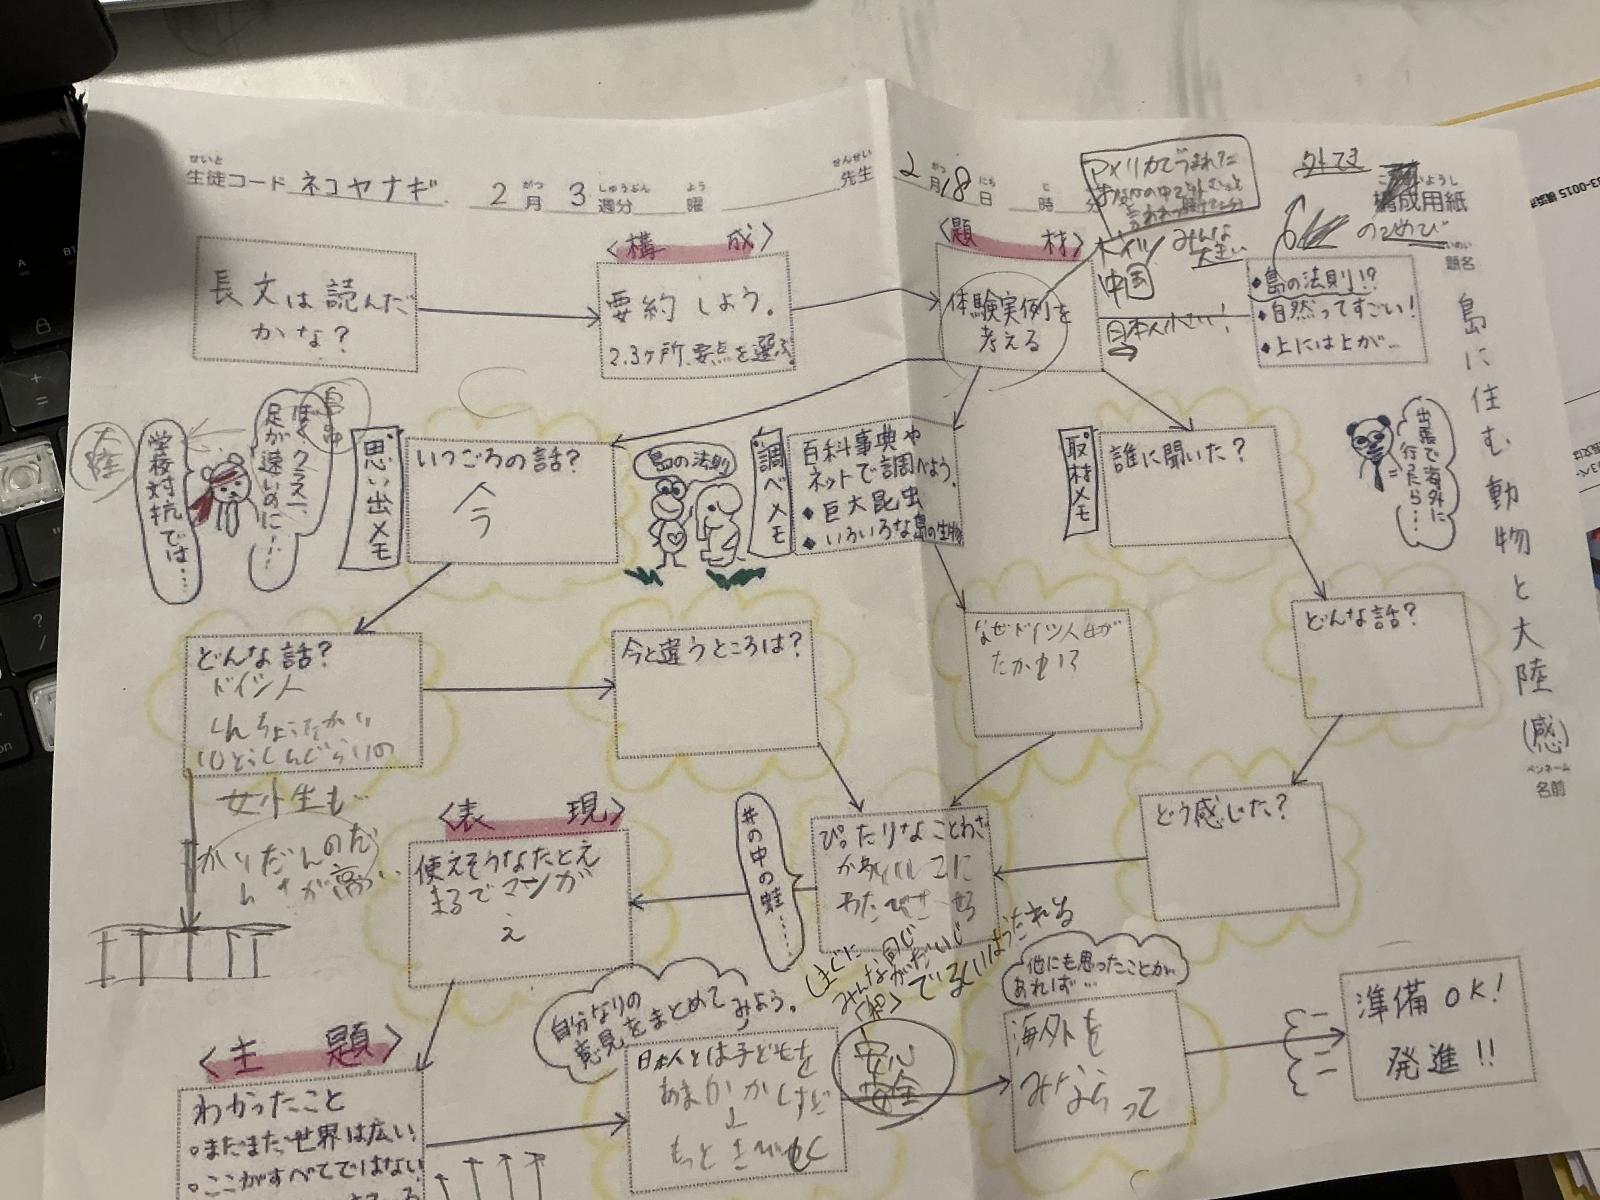 せいと
生徒コード ネコヤナギ
2月 3週分 曜
がつ しゅうぶん よう
せんせい
先生
2月18日 時 分
がつ にち じ
アメリカでうまれた
外でき
構成用紙
のびのび
だいめい
題名
島に住む動物と大陸(感)
ペンネーム
名前
長文は読んだ
かな?
<構 成>
要約しよう。
2.3ヶ所、要点を選ぶ
<題 材>
体験実例を
考える
ドイツ
中国
みんな
大きい
日本人小さい!
◆島の法則!?
◆自然ってすごい!
◆上には上が…
大陸
学校対抗では…
島
ぼく、クラス一、
足が速いのに……
思い出メモ
いつごろの話?
今
島の法則
調べメモ
百科事典や
ネットで調べよう。
◆巨大昆虫
◆いろいろな島の生物
取材メモ
誰に聞いた?
出張で海外に
行ったら…
どんな話?
ドイツ人
しんちょうたかい
女小生も…
かいだんのだ
んさが高い…
今と違うところは?
なぜドイツ人
どんな話?
<表 現>
使えそうなたとえ
まるでマンガ
え
井の中の蛙……
ぴったりなことわざ
かわいい子に
わたびさせろ
どう感じた?
みんな同じ
他にも思ったことが
あれば…
<主 題>
わかったこと
○まだまだ世界は広い
○ここがすべてではない
自分なりの
意見をまとめて
みよう。
日本人とは子どもを
あまかかしすぎ
↓
もっときびしく
安心
安全
海外を
みならって
準備OK!
発進!!